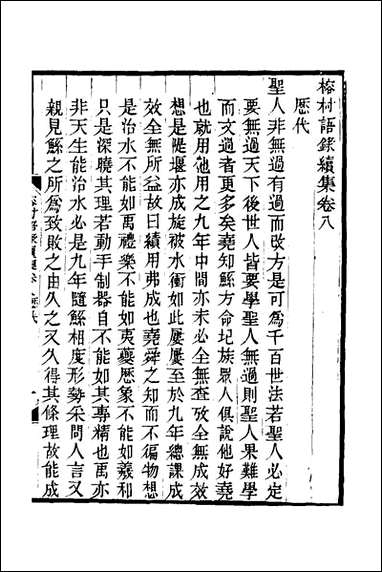 榕村語錄續集卷八
歷代
聖人非無過有過而改方是可為千百世法若聖人必定
要無過天下後世人皆要學聖人無過則聖人果難學
而文過者更多矣堯知鯀方命圮族眾人俱說他好堯
也就用他用之九年中間亦未必全無查攷全無成效
想是隄堰亦成旋被水衝如此屢屢至於九年總課成
效全無所益故曰績用弗成也堯舜之知而不徧物想
是治水不能如禹禮樂不能如夷夔歷象不能如羲和
只是深曉其理若動手制器自不能如其專精也禹亦
非天生能治水必是九年隨鯀相度形勢采問人言又
親見鯀之所為致敗之由久之又久得其條理故能成